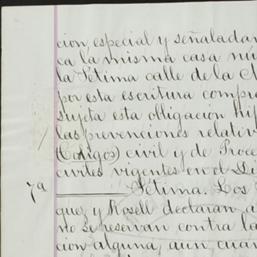 cion, especial y señaladam
ca la misma casa nú
la Sétima calle de la
por esta escritura comp
sujeta esta obligacion hip
las prevenciones relativ
Codigos) civil y de Proce
civiles vigentes en el Di
7ª Sétima. Los
que, y Rosell declaran,
no se reservan contra la
cion alguna, aun cuan